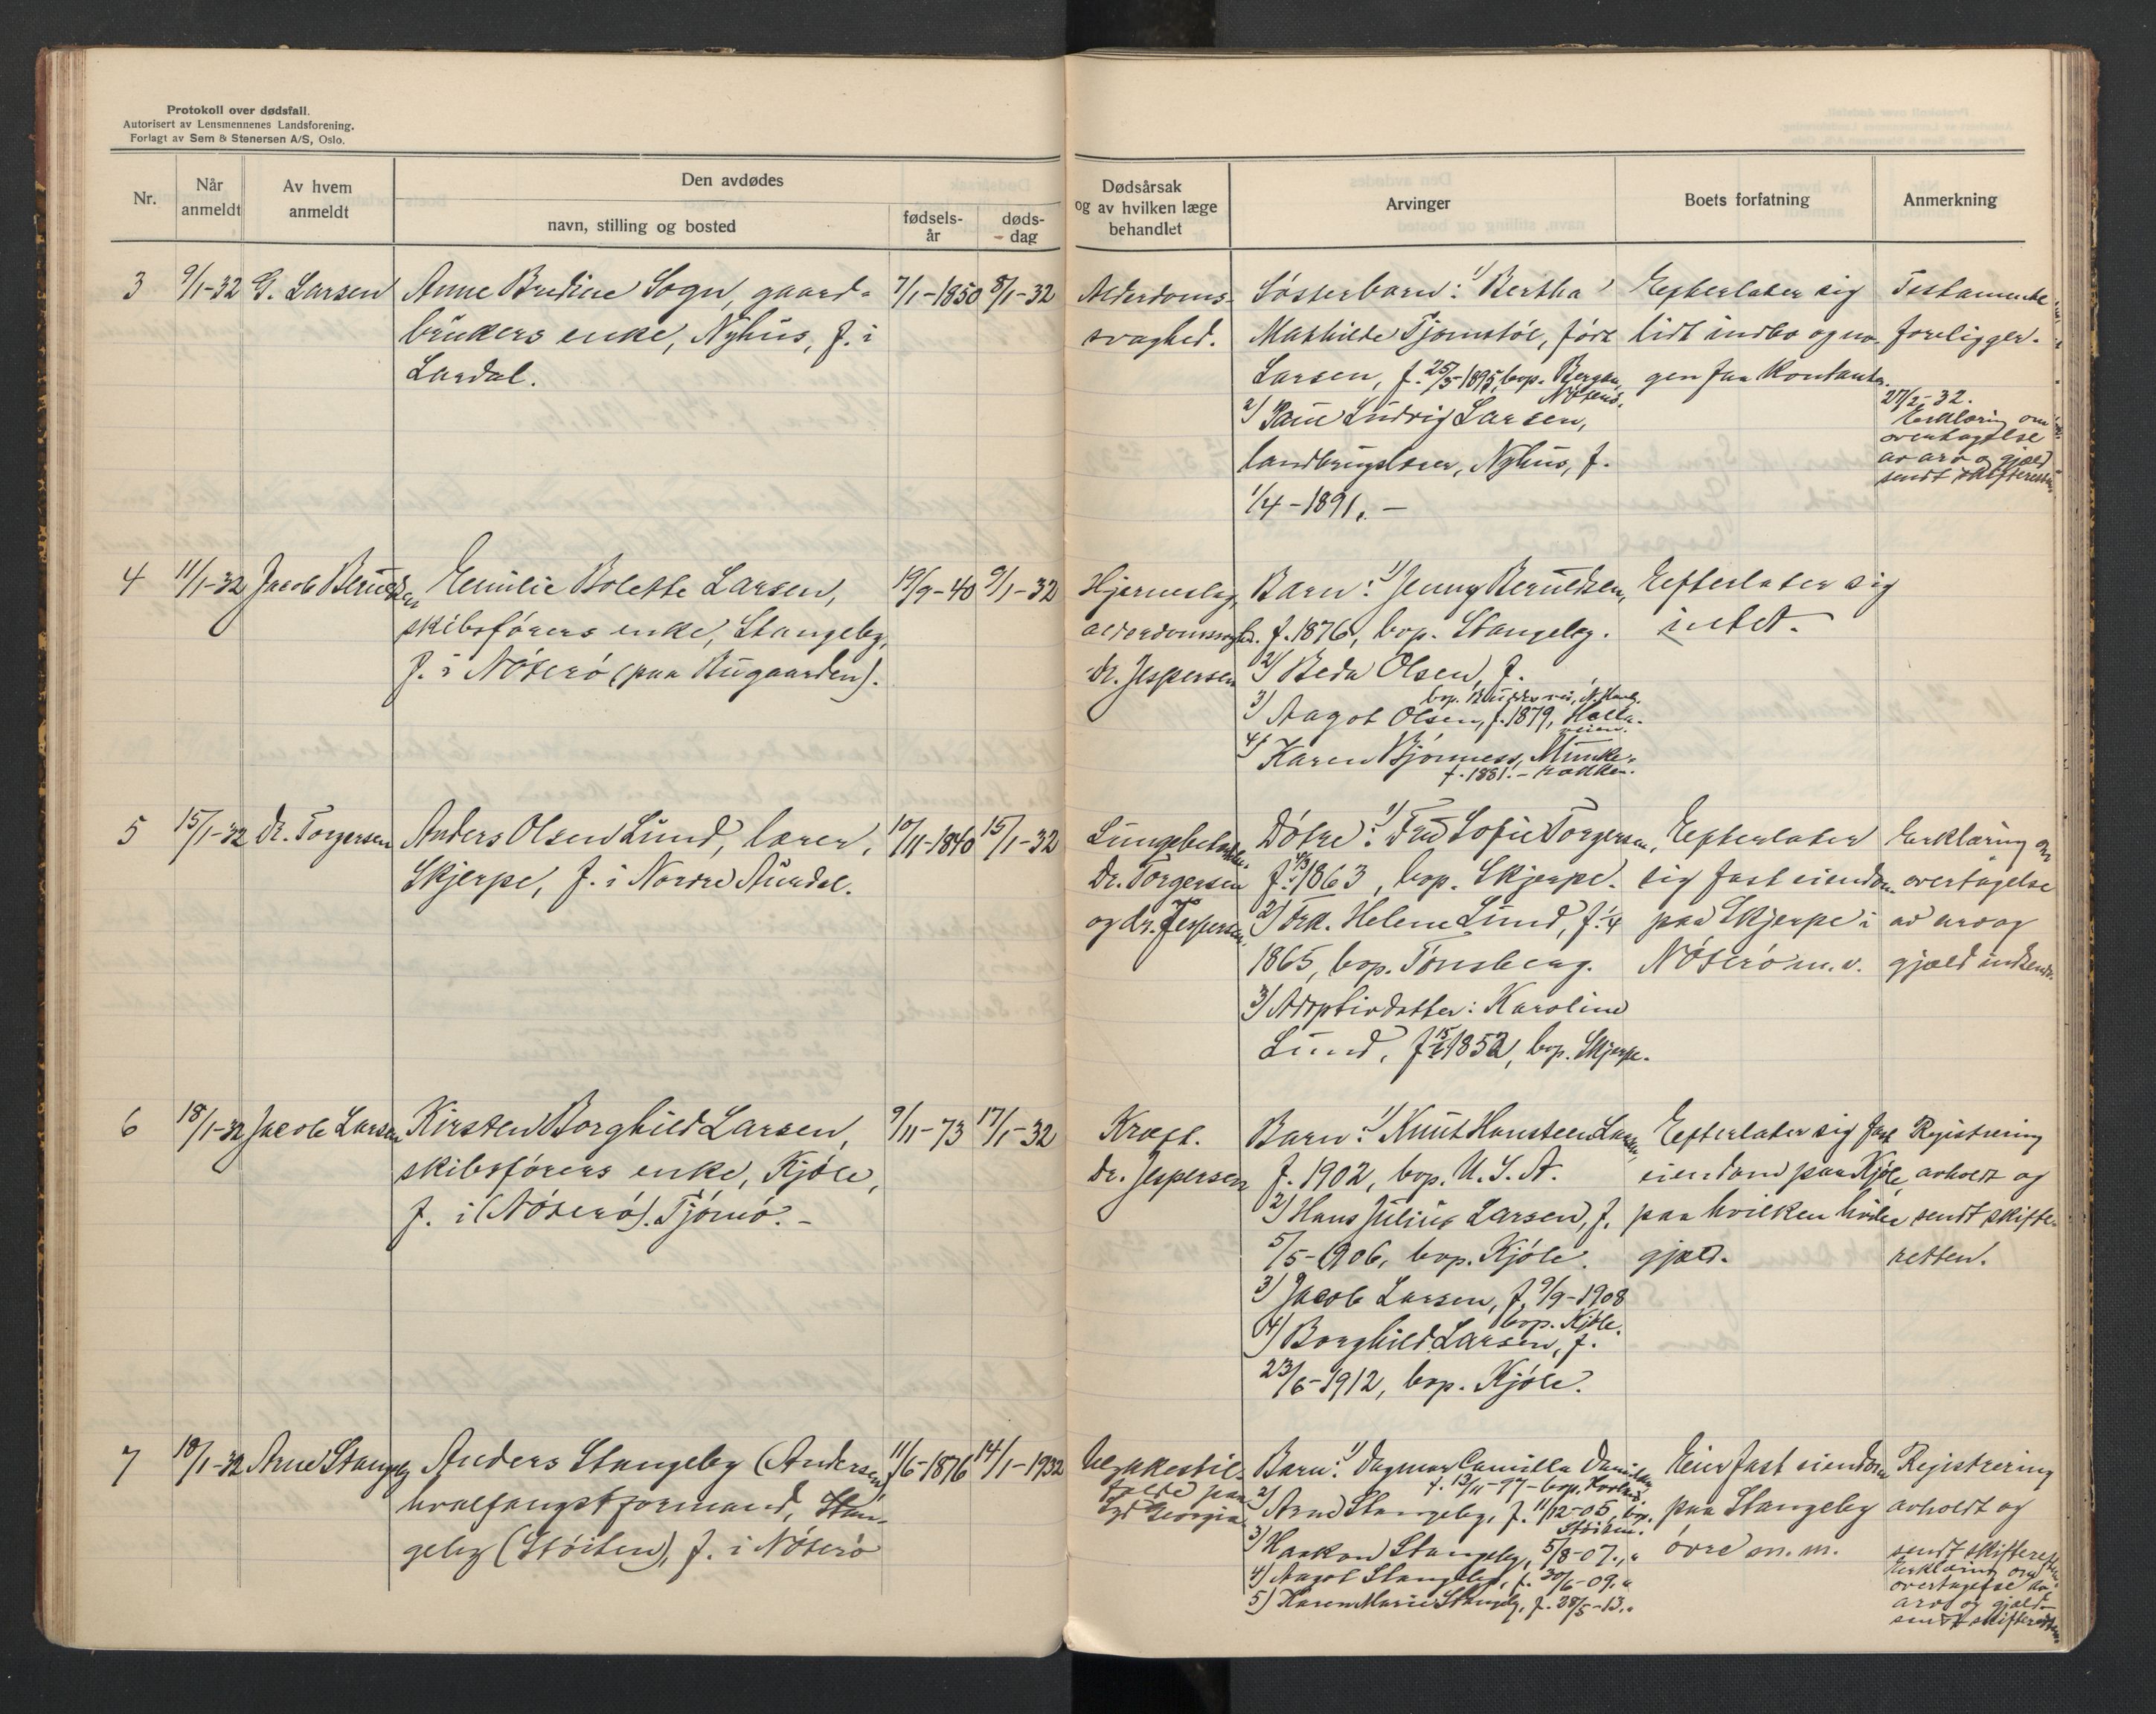 Protokoll over dødsfall.
Autorisert av Lensmennenes Landsforening.
Forlagt av Sem & Stenersen A/S, Oslo.
Nr.
Når anmeldt
Av hvem anmeldt
Den avdødes
navn, stilling og bosted
fødsels-år
døds-dag
Dødsårsak og av hvilken læge behandlet
Arvinger
Boets forfatning
Anmerkning
3
9/1-32
G. Larsen
Anne Bredine Sogn, gaard-
brukers enke, Nyhus, f. i
Lardal.
7/1-1850
8/1-32
Alderdoms-
svaghed.
Søsterbarn: 1) Bertha
Mathilde Tjømstøl, født
Larsen, f. 25/5-1895, bop. Bergan,
Nøterø.
2) Paul Ludvig Larsen,
landbrugslærer, Nyhus, f.
1/4-1891. -
Efterlater sig
lidt indbo og no-
gen faa kontanter.
Testamente
foreligger.
27/2-32.
Erklæring om
overtagelse
av arv og gjæld
sendt skifteretten
4
11/1-32
Jacob Berntsen
Emilie Bolette Larsen,
skibsførers enke, Stangeby,
f. i Nøterø (paa Rugaarden).
19/9-40
9/1-32
Hjerneslag,
alderdomssvaghed.
dr. Jespersen
Barn: 1) Jenny Berntsen,
f. 1876, bop. Stangeby.
2) Beda Olsen, f.
3) Aagot Olsen, f. 1879,
4) Karen Bjønness, Munke-
f. 1881. - rækken.
Efterlater sig
intet.
5
15/1-32
Dr. Torgersen
Anders Olsen Lund, lærer,
Skjerpe, f. i Nordre Aurdal.
10/11-1840
15/1-32
Lungebetændelse
Dr. Torgersen
og dr. Jespersen.
Døtre: 1) Fru Sofie Torgersen,
1863, bop. Skjerpe.
2) Frk. Helene Lund, f. 1/4
1865, bop. Tønsberg.
3) Adoptivdatter: Karoline
Lund, 1852, bop. Skjerpe.
Efterlater
sig fast eiendom
paa Skjerpe i
Nøterø m.v.
Erklæring om
overtagelse
av arv og
gjæld indsendt.
6
18/1-32
Jacob Larsen
Kirsten Borghild Larsen,
skibsførers enke, Kjøle,
f. i (Nøterø). Tjømø. -
9/11-73
17/1-32
Kræft.
dr. Jespersen
Barn: 1) Knut Hansteen Larsen,
f. 1902, bop. U.S.A.
2) Hans Julius Larsen, f.
5/5-1906, bop. Kjøle.
3) Jacob Larsen, f. 9/9-1908
bop. Kjøle.
4) Borghild Larsen, f.
23/6-1912, bop. Kjøle.
Efterlater sig fast
eiendom paa Kjøle,
paa hvilken hviler
gjæld.
Registrering
avholdt og
sendt skifte-
retten.
7
18/1-32
Arne Stangeby
Anders Stangeby (Andersen)
hvalfangstformand, Stan-
geby (Støiten), f. i Nøterø
11/6-1876
14/1-1932
Ulykkestil-
fælde paa
Syd Georgia
Barn: 1) Dagmar Camilla Danielsen
f. 13/11-97-bop.
2) Arne Stangeby, f. 11/12-05, bop.
Støiten.
3) Haakon Stangeby, 5/8-07., "
4) Aagot Stangeby, f. 30/6-09. "
5) Karen Marie Stangeby, f. 28/5-13. "
Eier fast eiendom
paa Stangeby
øvre m.m.
Registrering
avholdt og
sendt skifteretten.
Erklæring om
overtagelse av
arv og gjæld
sendt skifteretten